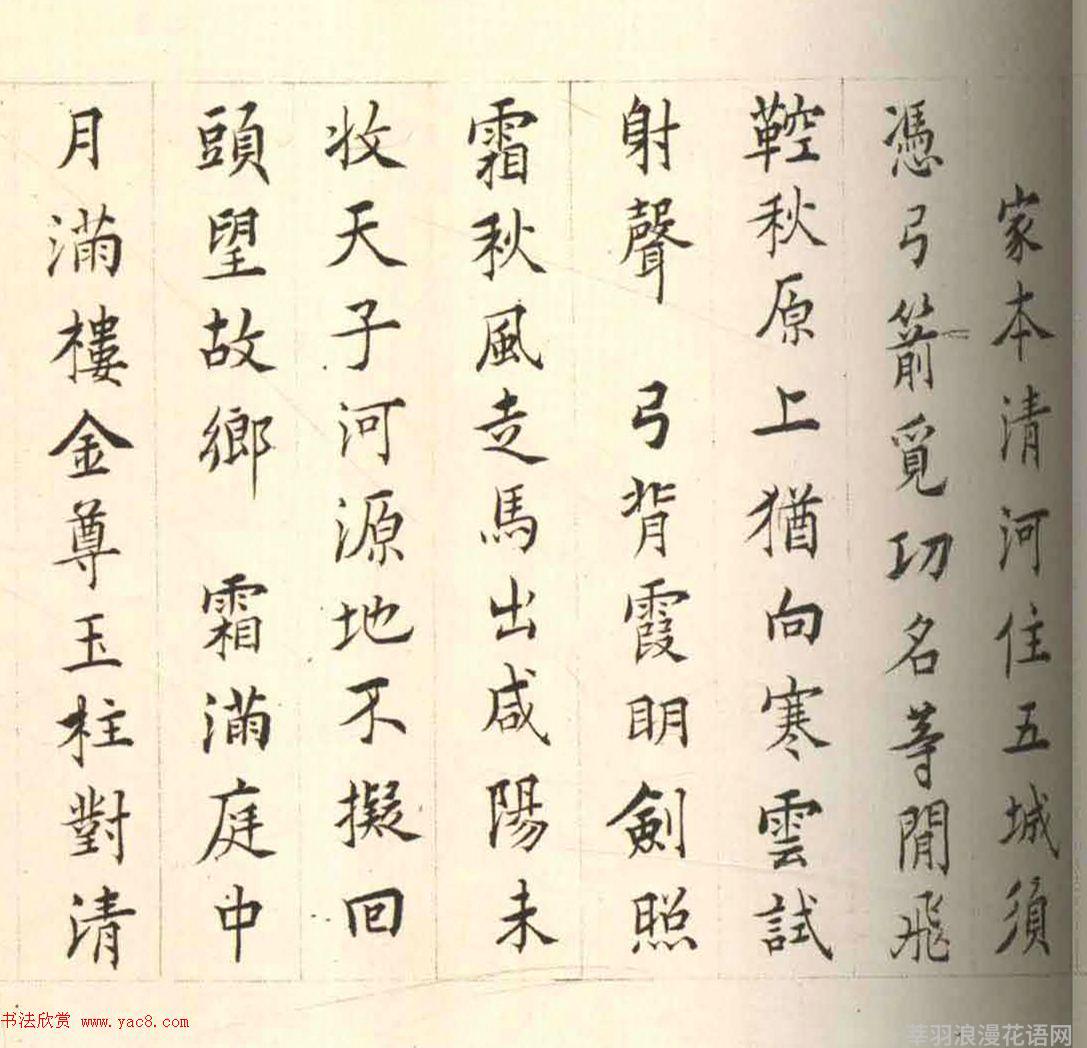 家本清河住五城須
憑弓箭覓功名等閒飛
鞚秋原上猶向寒雲試
射聲　弓背霞明劍照
霜秋風走馬出咸陽未
收天子河源地不擬回
頭望故鄉　霜滿庭中
月滿樓金尊玉柱對清
书法欣赏 www.yac8.com
莘羽浪漫花语网